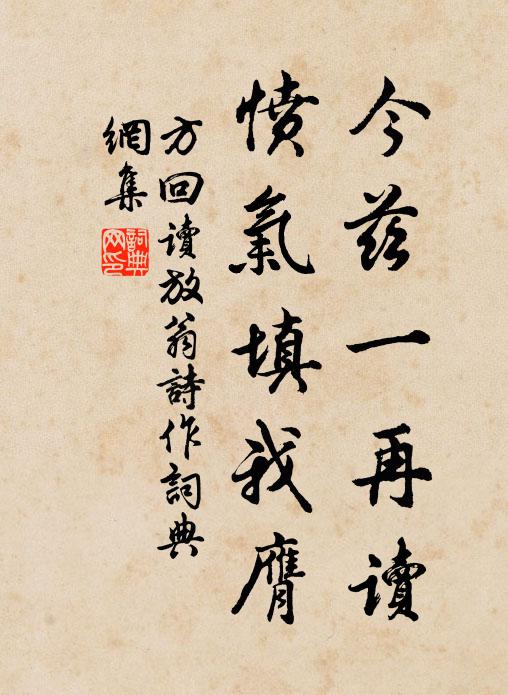 今茲一再讀
憤氣填我膺
方回讀放翁詩作詞典
網集
詞典
网印